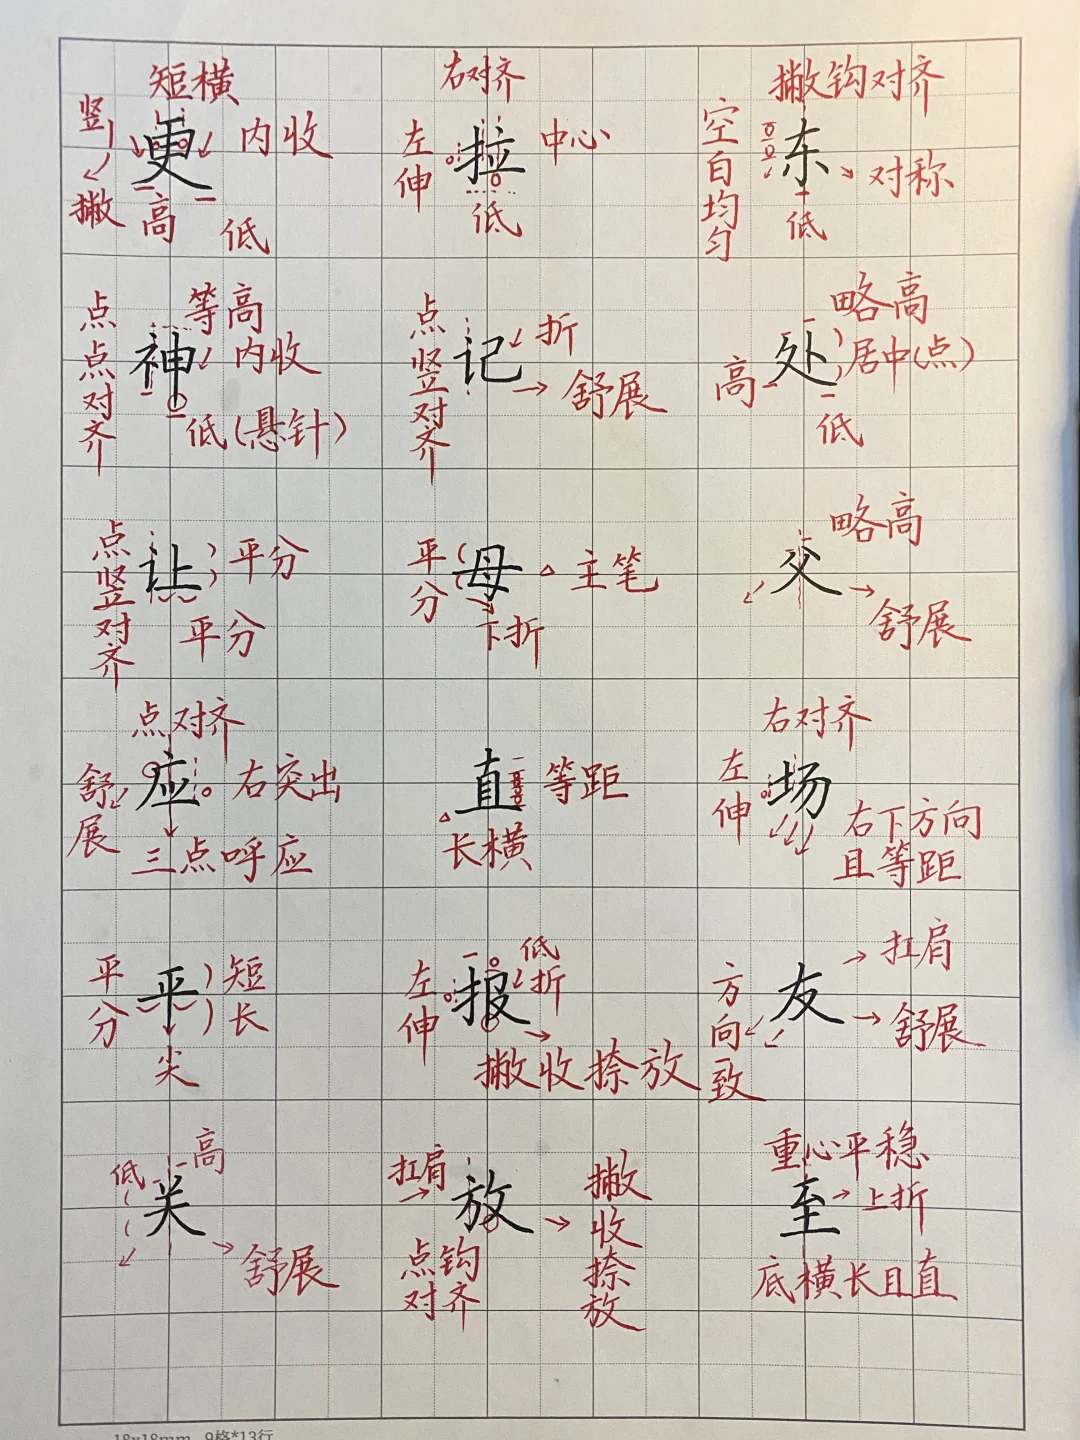 短横
竖
撇
更
内收
高
低
右对齐
左伸
拉
中心
低
撇钩对齐
空白均匀
东
对称
低
点点对齐
等高
神
内收
低(悬针)
点竖对齐
记
折
舒展
略高
处
居中(点)
高
低
点竖对齐
让
平分
平分
平分
母
主笔
下折
略高
父
舒展
点对齐
舒展
应
右突出
三点呼应
直
等距
长横
右对齐
左伸
场
右下方向
且等距
平分
平
短
长
尖
左伸
报
低
折
撇收捺放
方向致
友
扛肩
舒展
高
低
关
舒展
扛肩
放
点钩
对齐
撇收捺放
重心平稳
至
上折
底横长且直
18x18mm 9格*13行